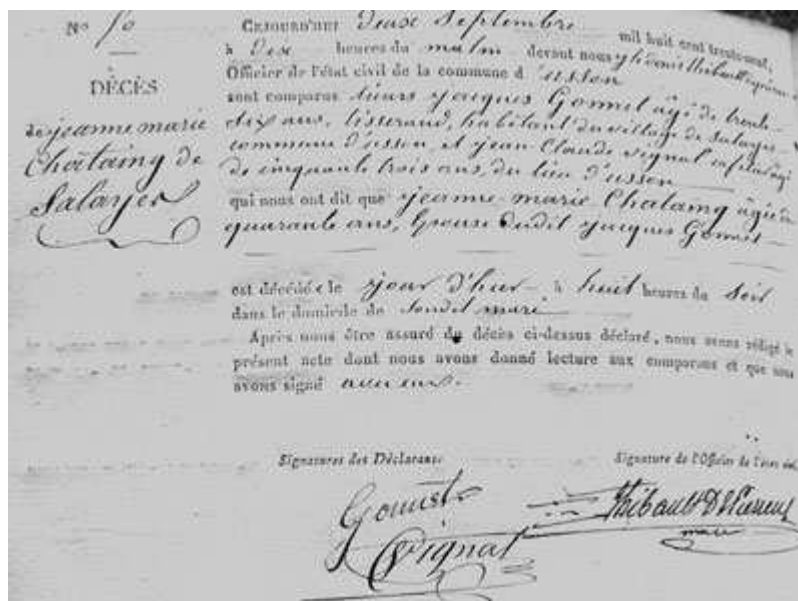 No 50
DÉCÈS
de jeanne marie
Chataing de
Salayer
CEJOURD'HUI deuse Septembre mil huit cent trente-sept,
à Dix heures du matin devant nous
Officier de l'état civil de la commune d'usson
sont comparus sieurs jacques Gonnet âgé de trente
six ans, tisserand, habitant du village de Salayer
commune d'usson, et jean Claude vignal âgé
de cinquante trois ans, du lieu d'usson
qui nous ont dit que jeanne-marie Chataing âgée de
quarante ans, Epouse dudit jacques Gonnet
est décédée le jour d'hier à huit heures du soir
dans le domicile de sondit mari
Après nous être assuré du décès ci-dessus déclaré, nous avons rédigé le
présent acte dont nous avons donné lecture aux comparans et que nous
avons signé avec eux.
Signatures des Déclarans
Signature de l'Officier de l'état civil
Vignal
Thibault
maire